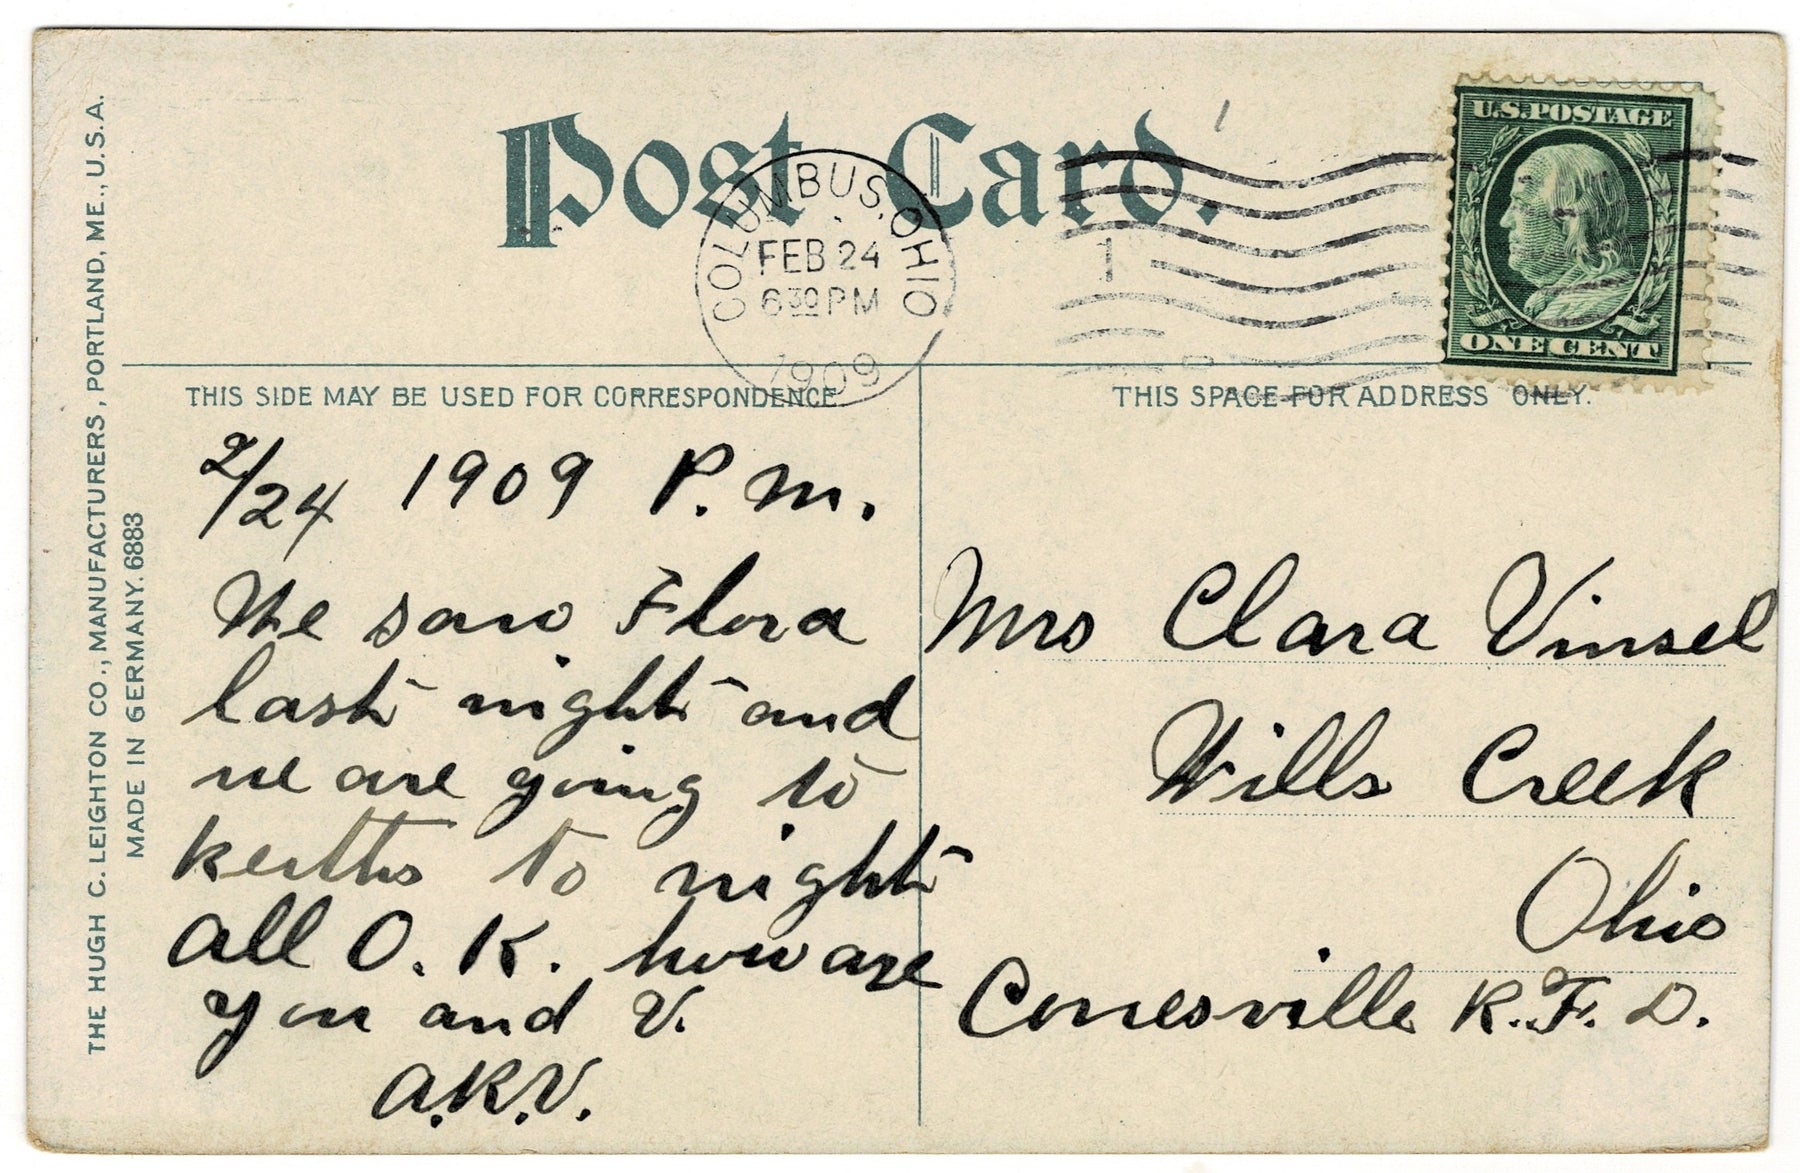 Post Card.
COLUMBUS, OHIO
FEB 24
6 30 PM
1909
1
U.S. POSTAGE
ONE CENT
THIS SIDE MAY BE USED FOR CORRESPONDENCE
THIS SPACE FOR ADDRESS ONLY.
2/24 1909 P.M.
We saw Flora
last night and
we are going to
keiths to night
all O.K. how are
you and V.
A.K.V.
Mrs Clara Vinsel
Wills Creek
Ohio
Conesville R.F.D.
THE HUGH C. LEIGHTON CO., MANUFACTURERS, PORTLAND, ME., U.S.A.
MADE IN GERMANY. 6883